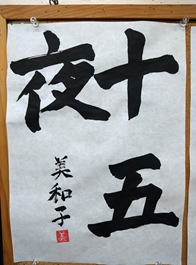 十五
夜
美和子
美